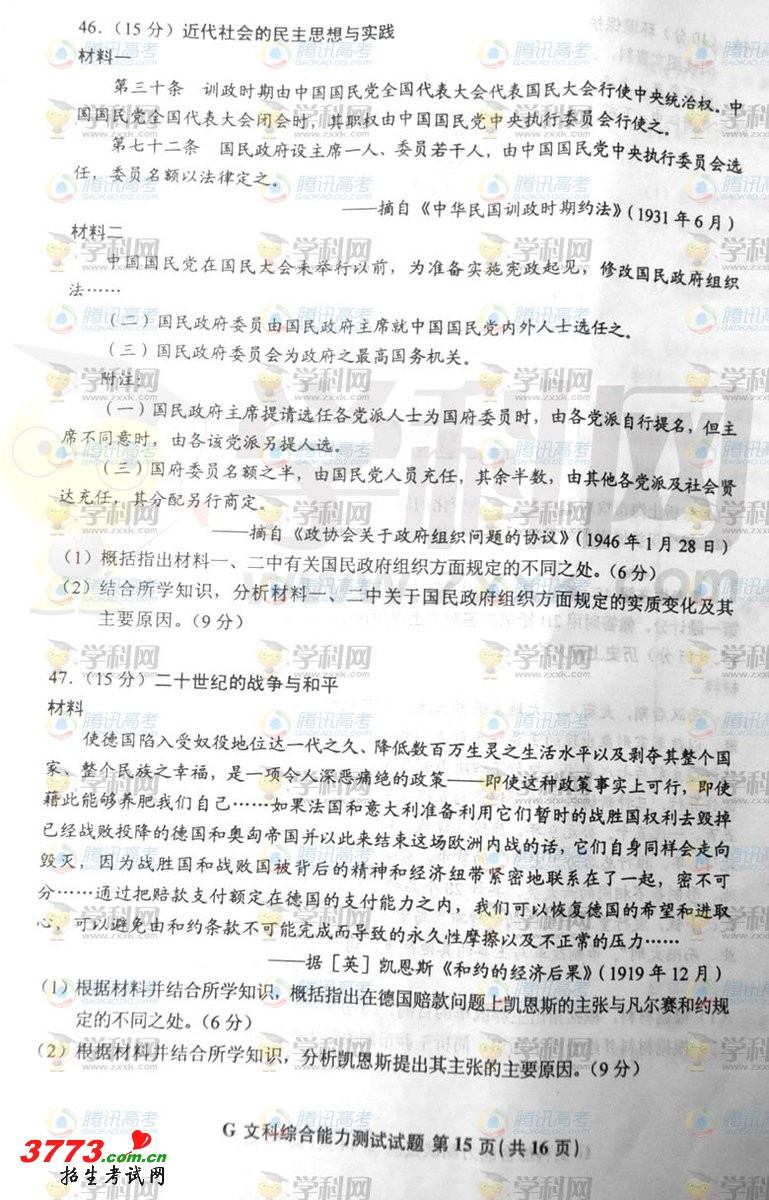 46.（15 分）近代社会的民主思想与实践
材料一
第三十条 训政时期由中国国民党全国代表大会代表国民大会行使中央统治权。中
国国民党全国代表大会闭会时，其职权由中国国民党中央执行委员会行使之。
第七十二条 国民政府设主席一人、委员若干人，由中国国民党中央执行委员会选
任，委员名额以法律定之。
——摘自《中华民国训政时期约法》（1931 年 6 月）
材料二
中国国民党在国民大会未举行以前，为准备实施宪政起见，修改国民政府组织
法……
（二）国民政府委员由国民政府主席就中国国民党内外人士选任之。
（三）国民政府委员会为政府之最高国务机关。
附注：
（一）国民政府主席提请选任各党派人士为国府委员时，由各党派自行提名，但主
席不同意时，由各该党派另提人选。
（三）国府委员名额之半，由国民党人员充任，其余半数，由其他各党派及社会贤
达充任，其分配另行商定。
——摘自《政协会关于政府组织问题的协议》（1946 年 1 月 28 日）
（1）概括指出材料一、二中有关国民政府组织方面规定的不同之处。（6 分）
（2）结合所学知识，分析材料一、二中关于国民政府组织方面规定的实质变化及其
主要原因。（9 分）
47.（15 分）二十世纪的战争与和平
材料
使德国陷入受奴役地位达一代之久、降低数百万生灵之生活水平以及剥夺其整个国
家、整个民族之幸福，是一项令人深恶痛绝的政策——即使这种政策事实上可行，即使
藉此能够养肥我们自己……如果法国和意大利准备利用它们暂时的战胜国权利去毁掉
已经战败投降的德国和奥匈帝国并以此来结束这场欧洲内战的话，它们自身同样会走向
毁灭，因为战胜国和战败国被背后的精神和经济纽带紧密地联系在了一起，密不可
分……通过把赔款支付额定在德国的支付能力之内，我们可以恢复德国的希望和进取
心，可以避免由和约条款不可能完成而导致的永久性摩擦以及不正常的压力……
——据［英］凯恩斯《和约的经济后果》（1919 年 12 月）
（1）根据材料并结合所学知识，概括指出在德国赔款问题上凯恩斯的主张与凡尔赛和约规
定的不同之处。（6 分）
（2）根据材料并结合所学知识，分析凯恩斯提出其主张的主要原因。（9 分）
G 文科综合能力测试试题 第 15 页（共 16 页）
3773.com.cn
招生考试网